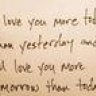 I love you more tod
han yesterday and
I love you more
omorrow than today